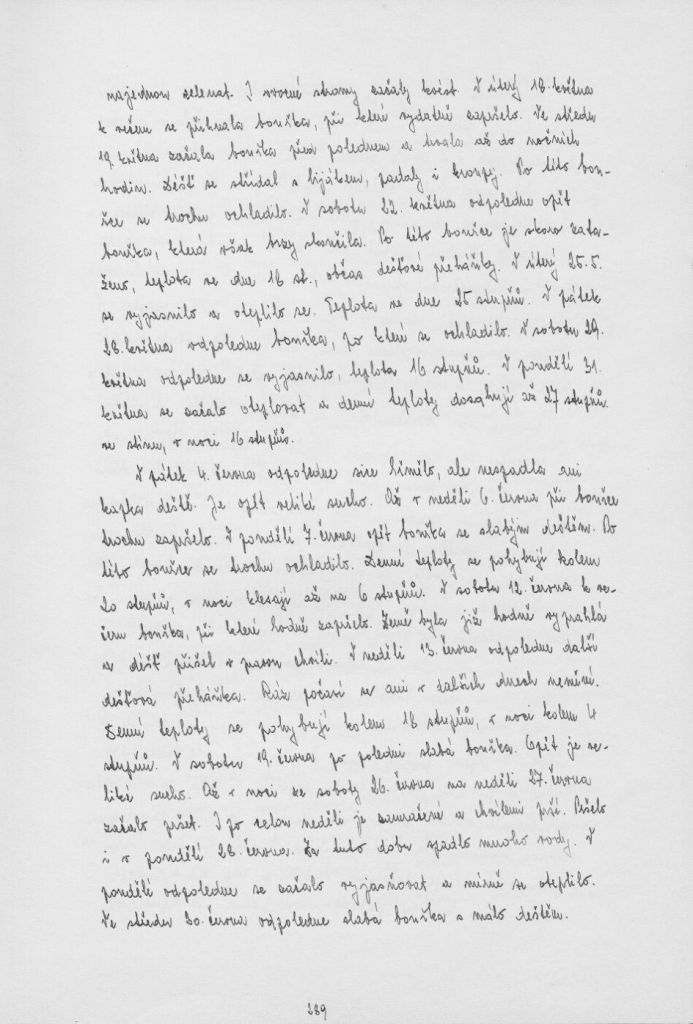 najednou zelenat. I ovocné stromy začaly kvést. V úterý 18. května
k večeru se přihnala bouřka, při které vydatně zapršelo. Ve středu
19. května začala bouřka před polednem a trvala až do nočních
hodin. Déšť se střídal s lijákem, padaly i kroupy. Po této bou-
řce se trochu ochladilo. V sobotu 22. května odpoledne opět
bouřka, která však brzy skončila. Po této bouřce je skoro zata-
ženo, teplota ve dne 18 st., občas dešťové přeháňky. V úterý 25.5.
se vyjasnilo a oteplilo se. Teplota ve dne 25 stupňů. V pátek
28. května odpoledne bouřka, po které se ochladilo. V sobotu 29.
května odpoledne se vyjasnilo, teplota 16 stupňů. V pondělí 31.
května se začalo oteplovat a denní teploty dosahují až 27 stupňů
ve stínu, v noci 16 stupňů.
V pátek 4. června odpoledne sice hřmělo, ale nespadla ani
kapka deště. Je opět veliké sucho. Až v neděli 6. června při bouřce
trochu zapršelo. V pondělí 7. června opět bouřka se slabým deštěm. Po
této bouřce se trochu ochladilo. Denní teploty se pohybují kolem
20 stupňů, v noci klesají až na 6 stupňů. V sobotu 12. června k ve-
čeru bouřka, při které hodně zapršelo. Země byla již hodně vyprahlá
a déšť přišel v pravou chvíli. V neděli 13. června odpoledne další
dešťová přeháňka. Ráz počasí se ani v dalších dnech nemění.
Denní teploty se pohybují kolem 18 stupňů, v noci kolem 4
stupňů. V sobotu 19. června po poledni slabá bouřka. Opět je ve-
liké sucho. Až v noci ze soboty 26. června na neděli 27. června
začalo pršet. I po celou neděli je zamračené a chvílemi prší. Pršelo
i v pondělí 28. června. Za tuto dobu spadlo mnoho vody. V
pondělí odpoledne se začalo vyjasňovat a mírně se oteplilo.
Ve středu 30. června odpoledne slabá bouřka s málo deštěm.
289